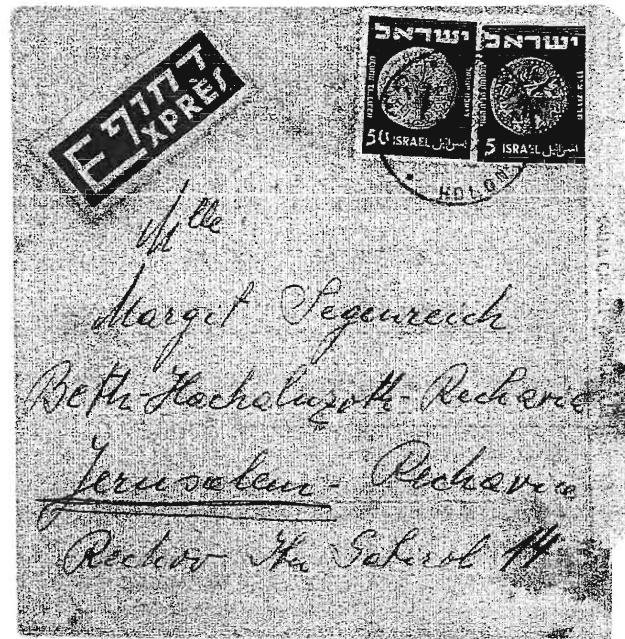 דחוף
EXPRÈS
ישראל ישראל
50 ISRAEL اسرائيل
5 ISRAEL اسرائيل
HOLON
Mlle
Margit Segenreich
Beth-Hachaluzoth-Rechavia
Jerusalem - Rechavia
Rechov Ibn Gabirol 14